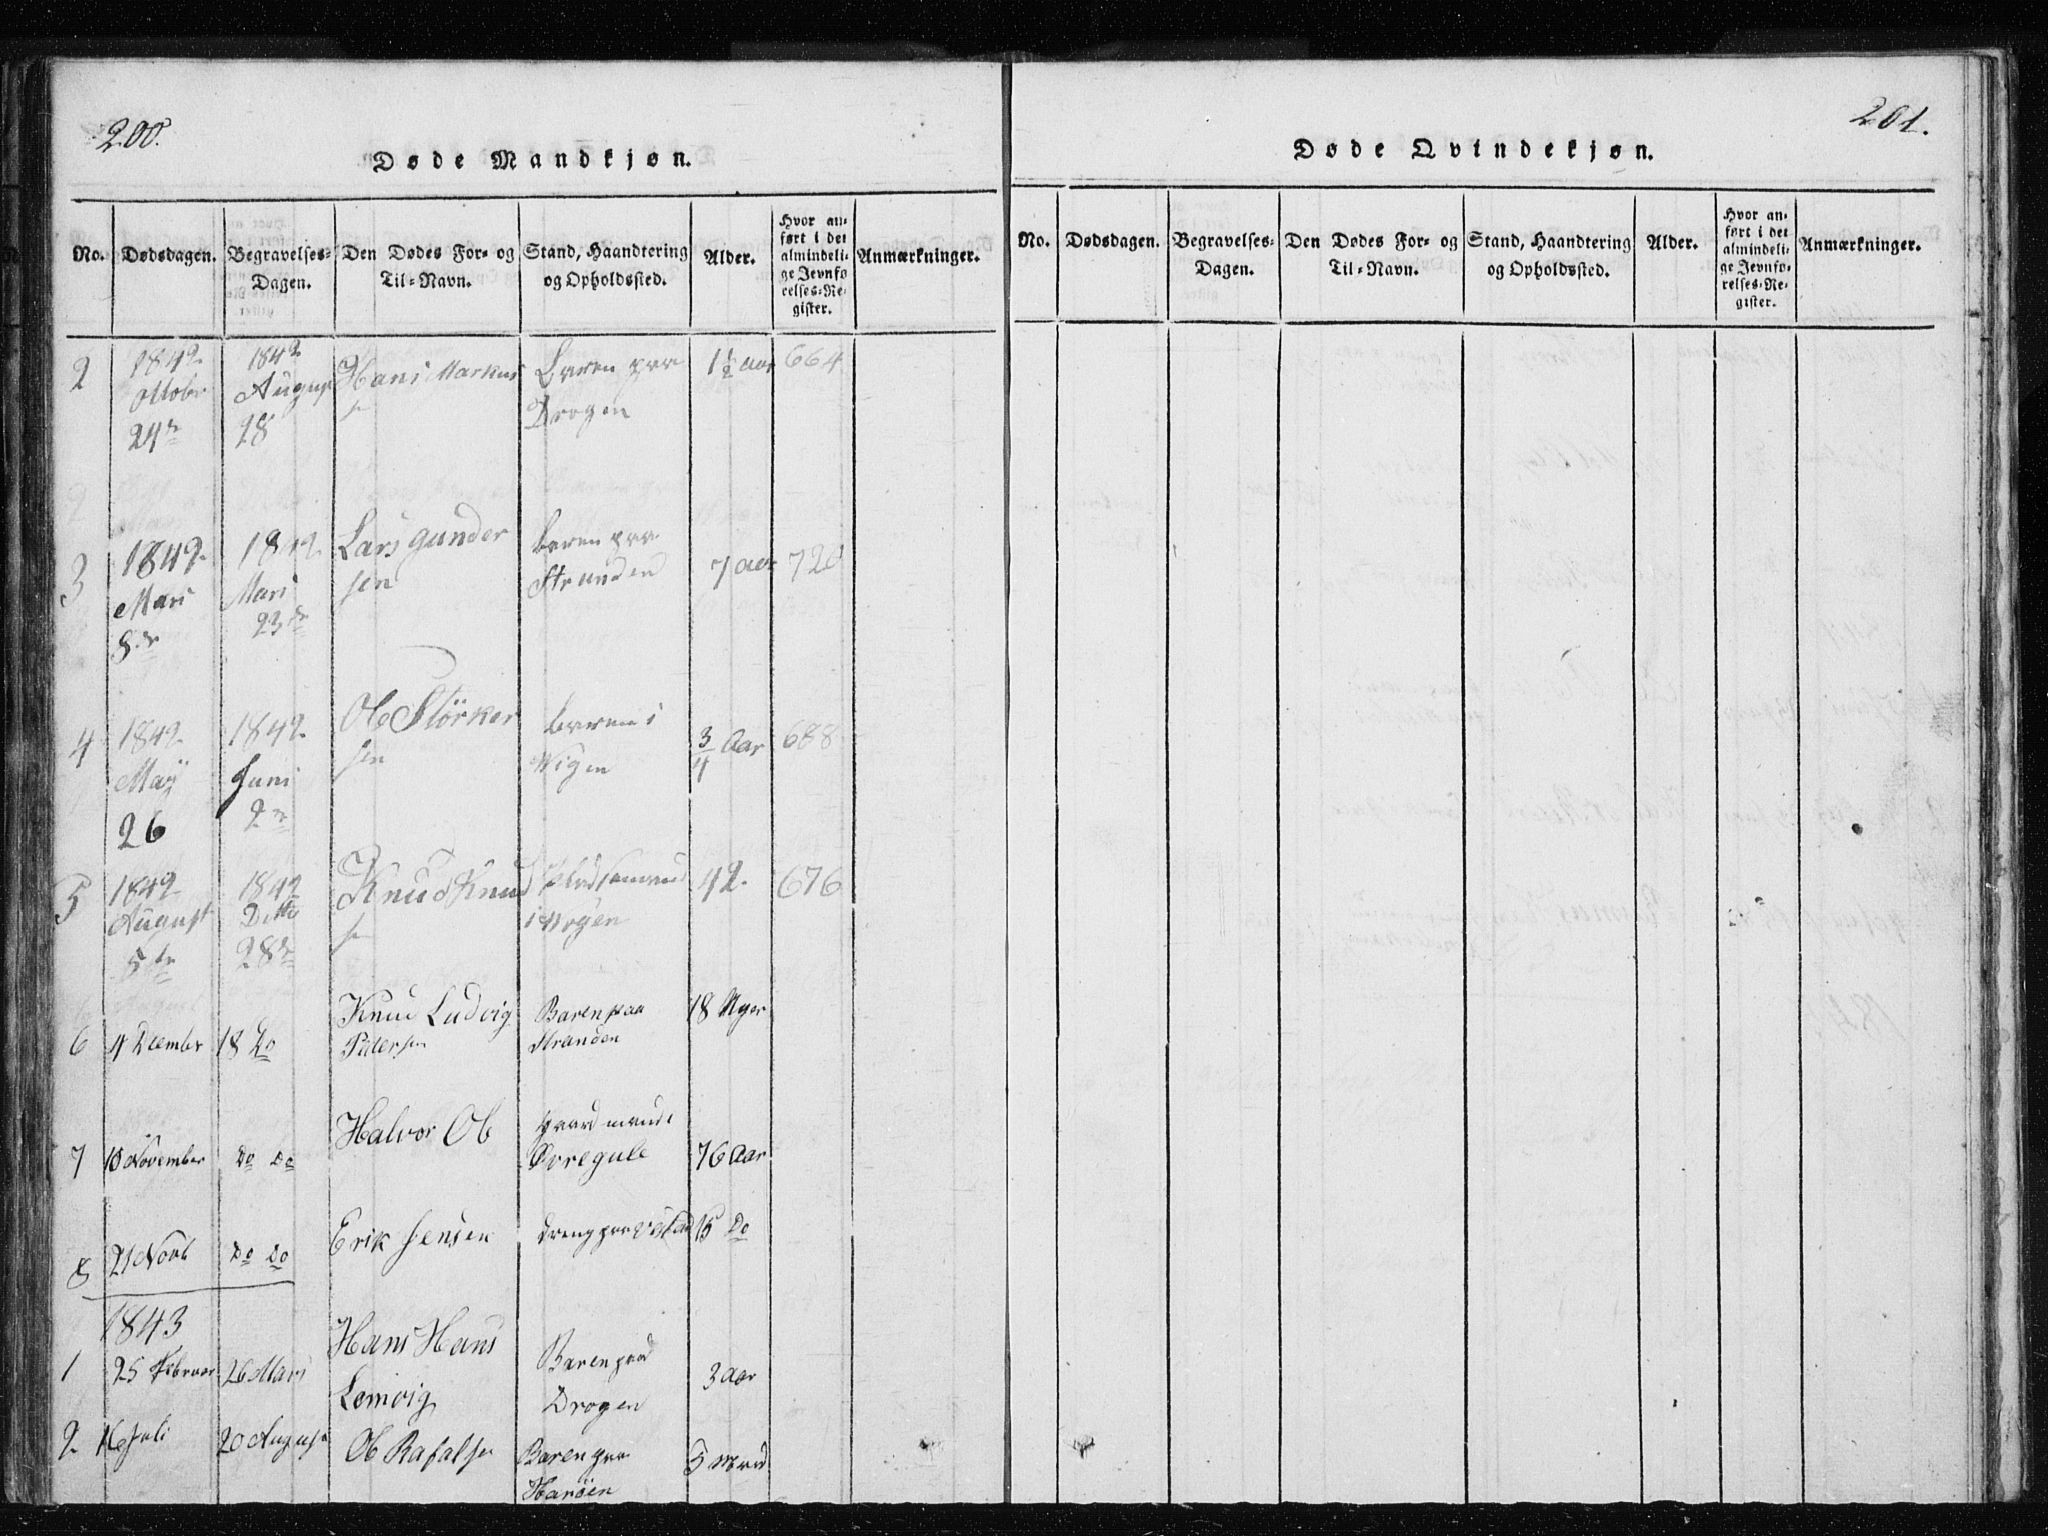 200.
Døde Mandkjøn.
No.
Dødsdagen.
Begravelses-
Dagen.
Den Dødes For- og
Til-Navn.
Stand, Haandtering
og Opholdssted.
Alder.
Hvor an-
ført i det
almindeli-
ge Jevnfø
relses-Re-
gister.
Anmærkninger.
2
1842
Octobr
24de
1842
August
28
Hans Markus
sen
Barn paa
Drogen
1½ Aar
664
3
1842
Mars
8de
1842
Mars
23de
Lars Gunder
sen
Barn paa
Stranden
7 Aar
720
4
1842
May
26
1842
Juni
2
Ole Störker
sen
Barn i
Vigen
3/4 Aar
688
5
1842
August
5te
1842
Ditto
28de
Knud Knud
sen
Pladsmand
i Vogen
42
676
6
4 December
18 Do
Knud Ludvig
Pedersen
Baren paa
Stranden
18 Uger
7
18 November
Do Do
Halvor Ols
Gaardmand
Øvregule
76 Aar
8
21 Novb
Do Do
Erik Jensen
Dreng paa
15 Do
1843
1
25 Februar
26 Mars
Hans Hans
Lemvig
Baren paa
Drogen
3 Aar
2
16 Juli
20 August
Ole Rafalsen
Baren paa
Haröen
5 Maad
201.
Døde Qvindekjøn.
No.
Dødsdagen.
Begravelses-
Dagen.
Den Dødes For- og
Til-Navn.
Stand, Haandtering
og Opholdssted.
Alder.
Hvor an-
ført i det
almindeli-
ge Jevnfø-
relses-Re-
gister.
Anmærkninger.